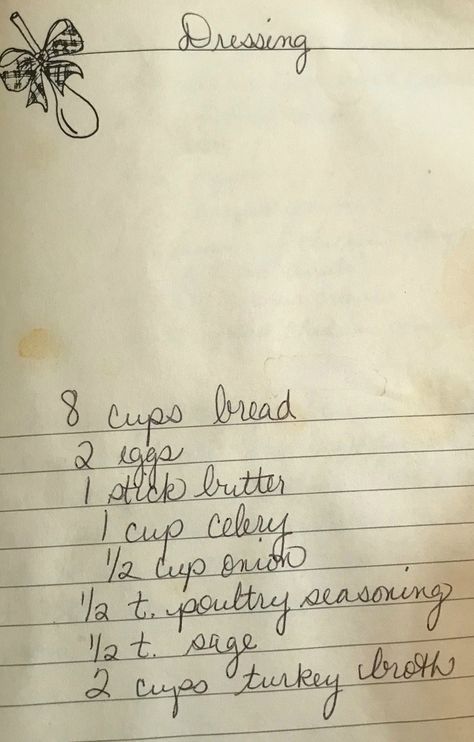 Dressing
8 cups bread
2 eggs
1 stick butter
1 cup celery
1/2 cup onion
1/2 t. poultry seasoning
1/2 t. sage
2 cups turkey broth